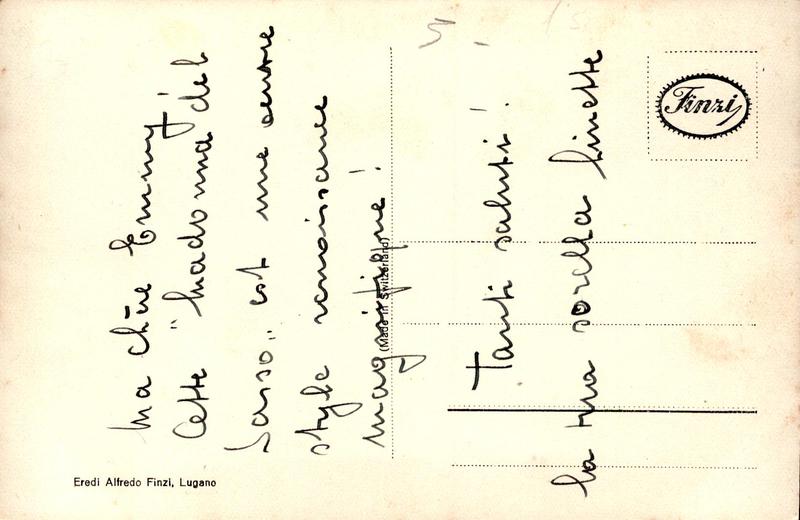 Ma chère Emmy
Cette "Madonna del
Sasso" est une œuvre
style renaissance
magnifique!
Tanti saluti!
La tua sorella Linette
Finzi
(Made in Switzerland)
Eredi Alfredo Finzi, Lugano